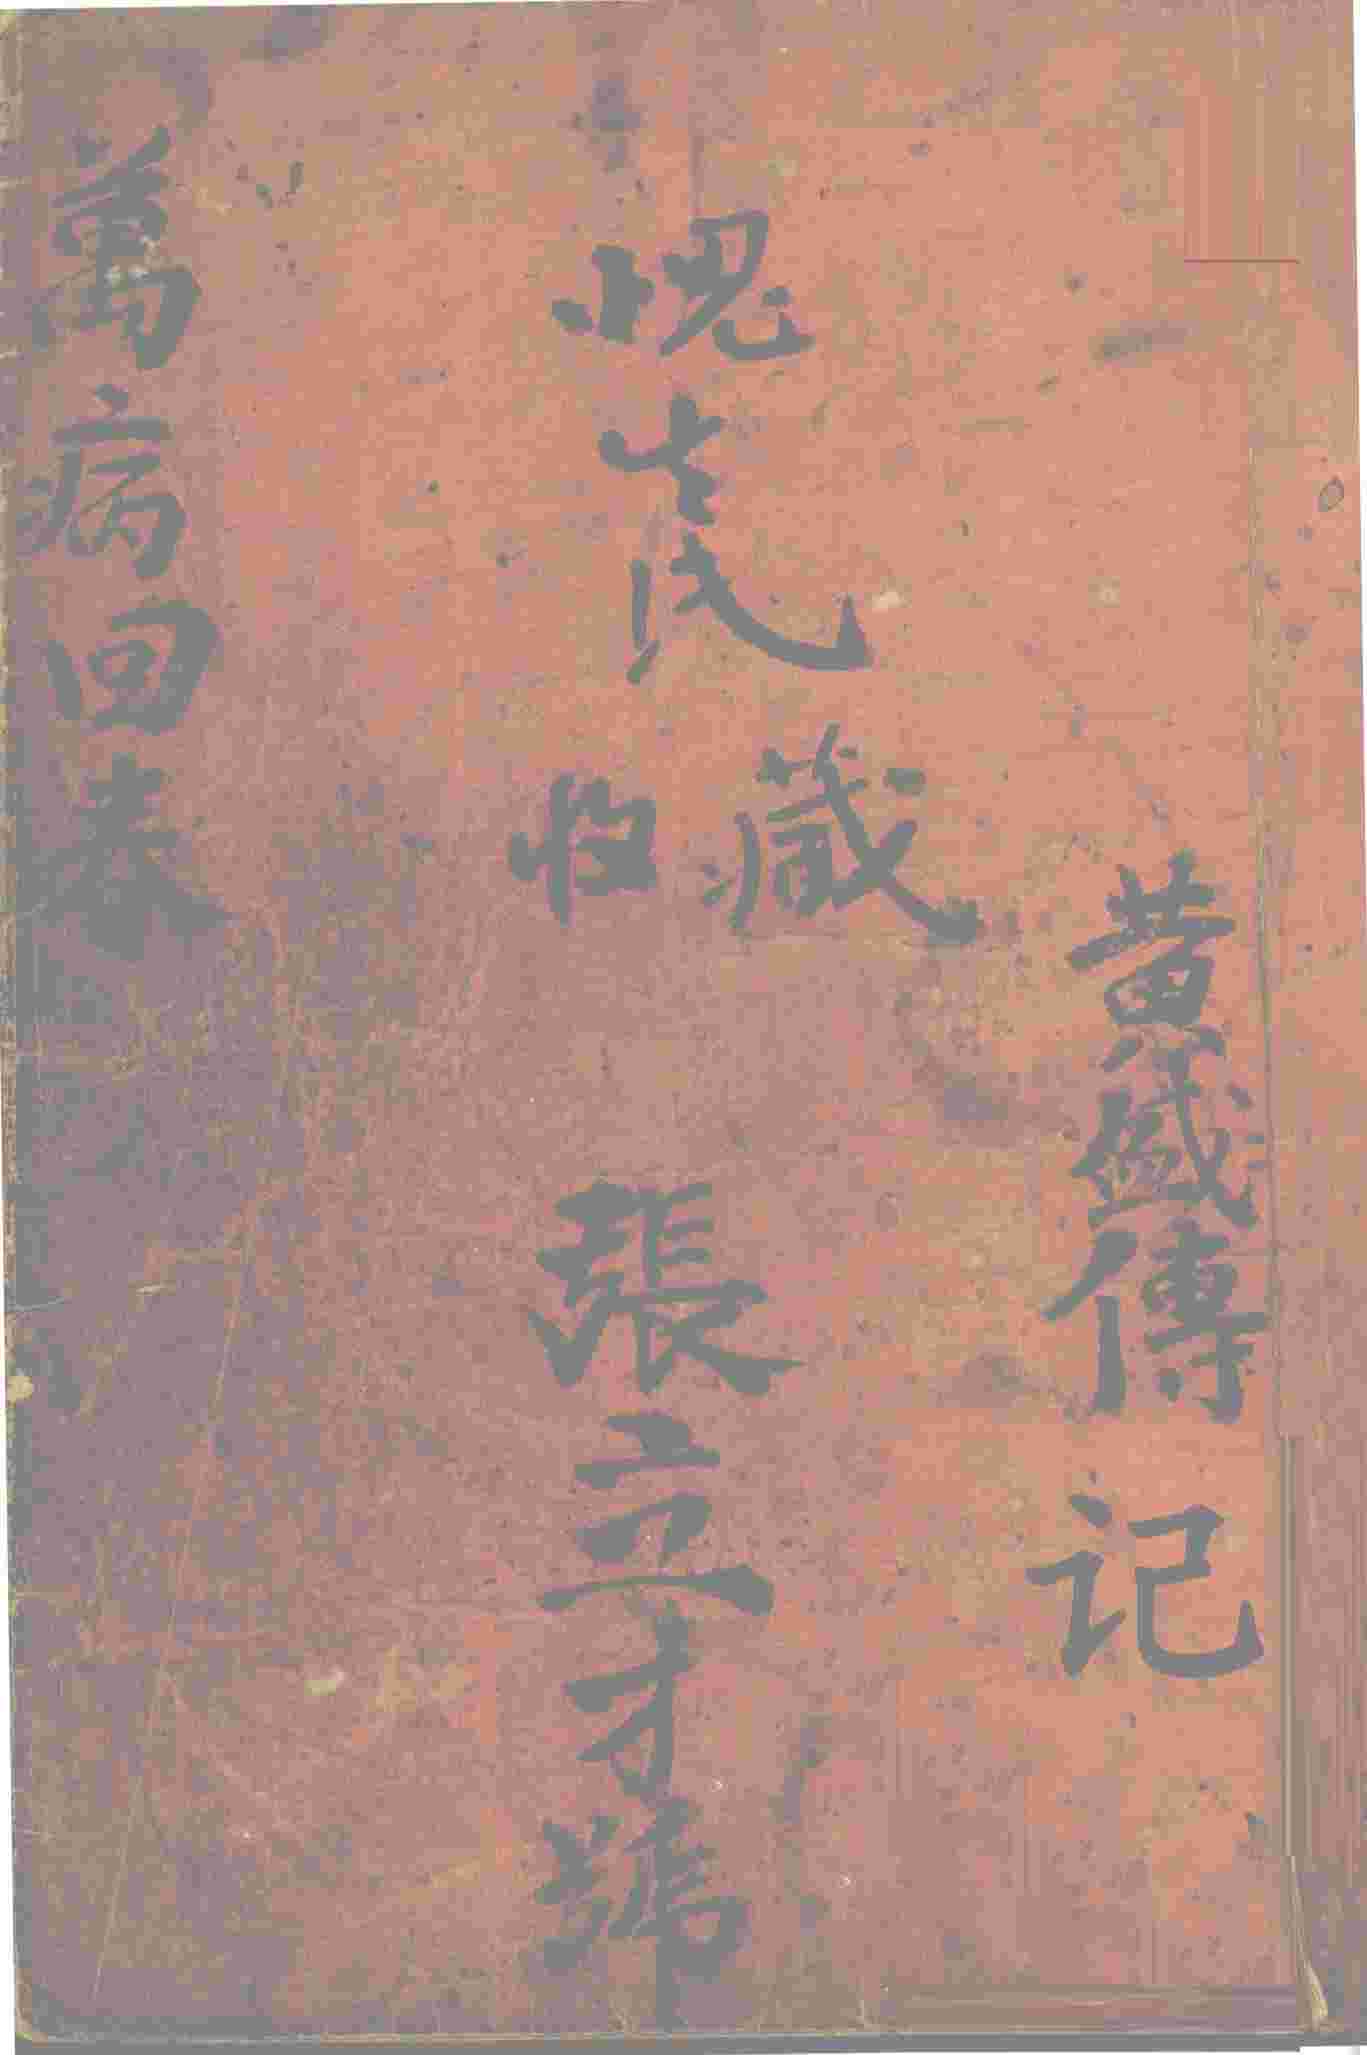 黄盛傳记
生氏
收藏
張立才號
萬病回春